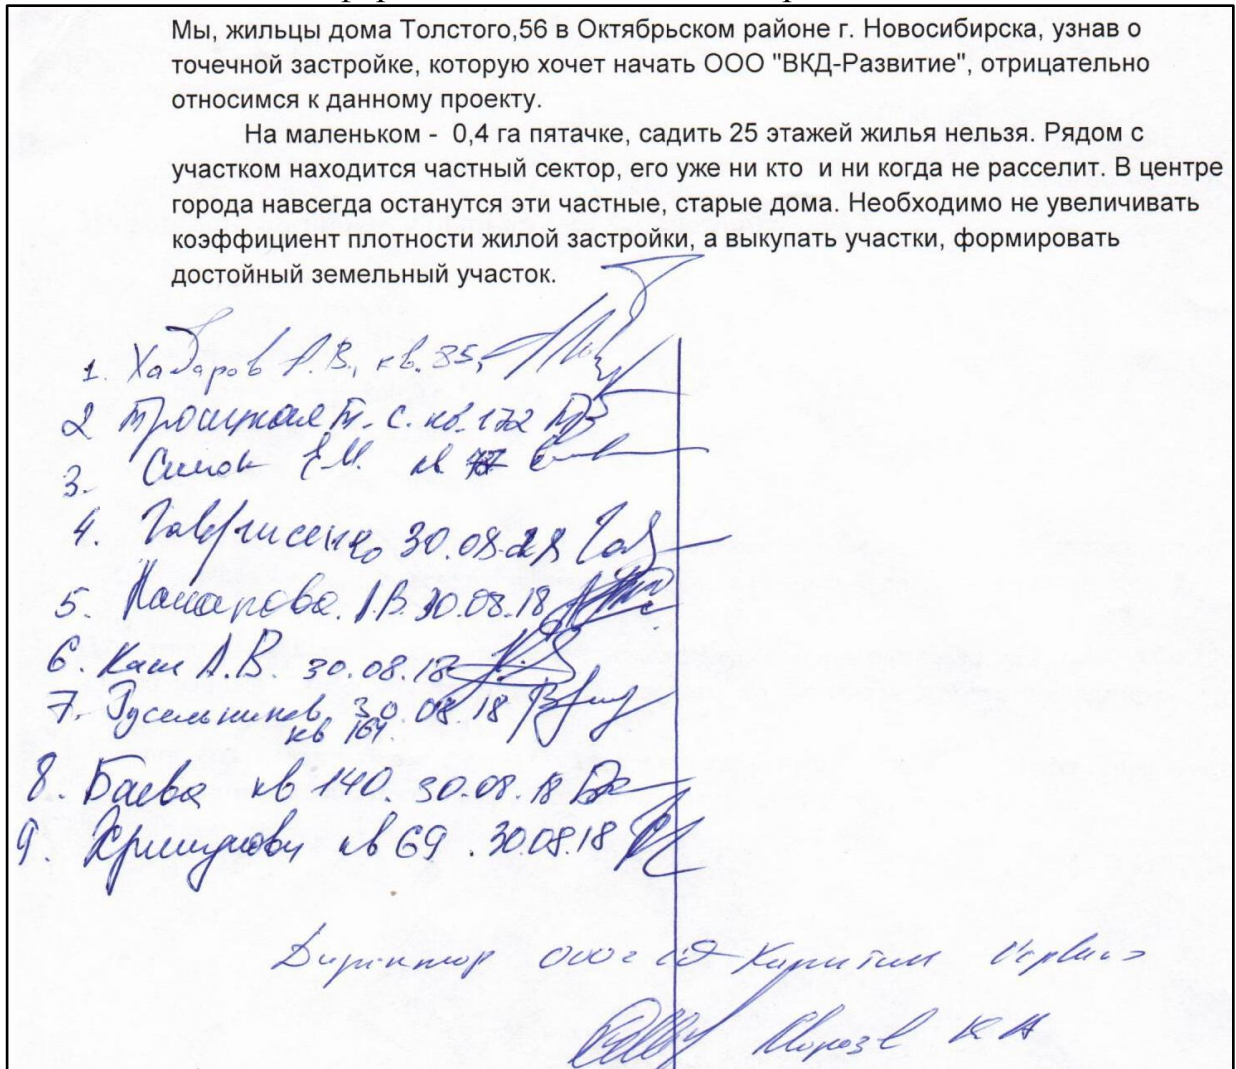 Мы, жильцы дома Толстого,56 в Октябрьском районе г. Новосибирска, узнав о
точечной застройке, которую хочет начать ООО "ВКД-Развитие", отрицательно
относимся к данному проекту.
На маленьком - 0,4 га пятачке, садить 25 этажей жилья нельзя. Рядом с
участком находится частный сектор, его уже ни кто и ни когда не расселит. В центре
города навсегда останутся эти частные, старые дома. Необходимо не увеличивать
коэффициент плотности жилой застройки, а выкупать участки, формировать
достойный земельный участок.
1. Хабаров А.В., кв. 35,
2 Троцкая Т. С. кв. 172
3. Е.М. кв
4. 30.08.
5. А.В. 30.08.18
6. Ким А.В. 30.08.18
7. Гусельников 30.08.18
кв 164.
8. Баева кв 140. 30.08.18
9. кв 69. 30.08.18
Директор ООО Капитал Сервис
Мороз К А